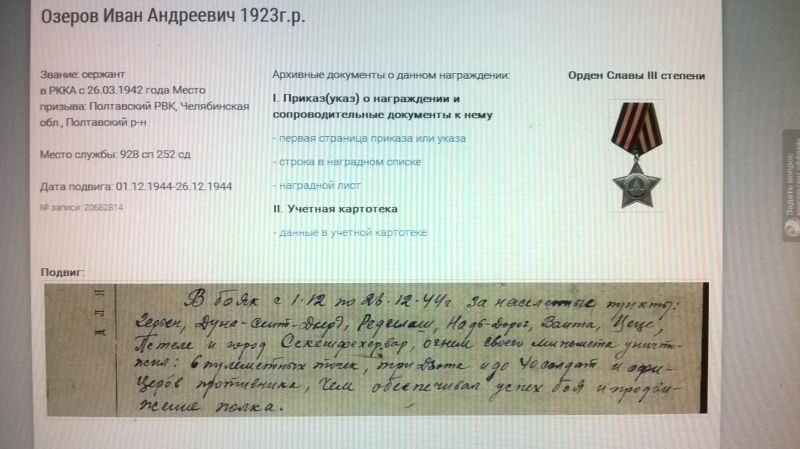 Озеров Иван Андреевич 1923г.р.
Звание: сержант
в РККА с 26.03.1942 года Место
призыва: Полтавский РВК, Челябинская
обл., Полтавский р-н
Место службы: 928 сп 252 сд
Дата подвига: 01.12.1944-26.12.1944
№ записи: 20682814
Архивные документы о данном награждении:
I. Приказ(указ) о награждении и
сопроводительные документы к нему
- первая страница приказа или указа
- строка в наградном списке
- наградной лист
II. Учетная картотека
- данные в учетной картотеке
Орден Славы III степени
Задать вопрос
Подвиг:
для
В боях с 1·12 по 26·12·44г за населенные пункты:
Дуна-Сент-Дьердь, Надь-Дорог, Вайта, Цеце,
и город Секешфехервар, огнем своего миномета уничто-
жил: 6 пулеметных точек, три Дзота и до 40 солдат и офи-
церов противника, чем обеспечивал успех боя и продви-
жение полка.